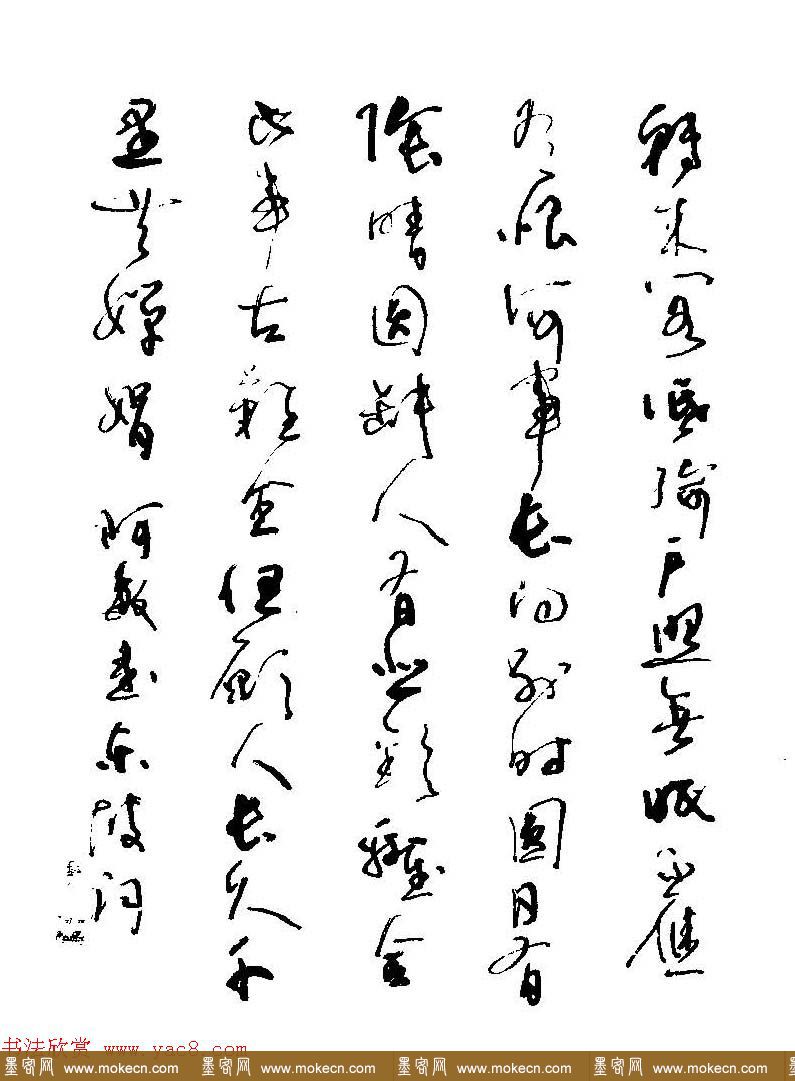 轉朱閣低綺戶照無眠不應
有恨何事長向別时圓月有
陰晴圆缺人有悲歡離合
此事古難全但願人長久千
里共嬋娟 阿書东坡词
书法欣赏 www.yac8.com
墨客网 www.mokecn.com 墨客网 www.mokecn.com 墨客网 www.mokecn.com 墨客网 www.mokecn.com